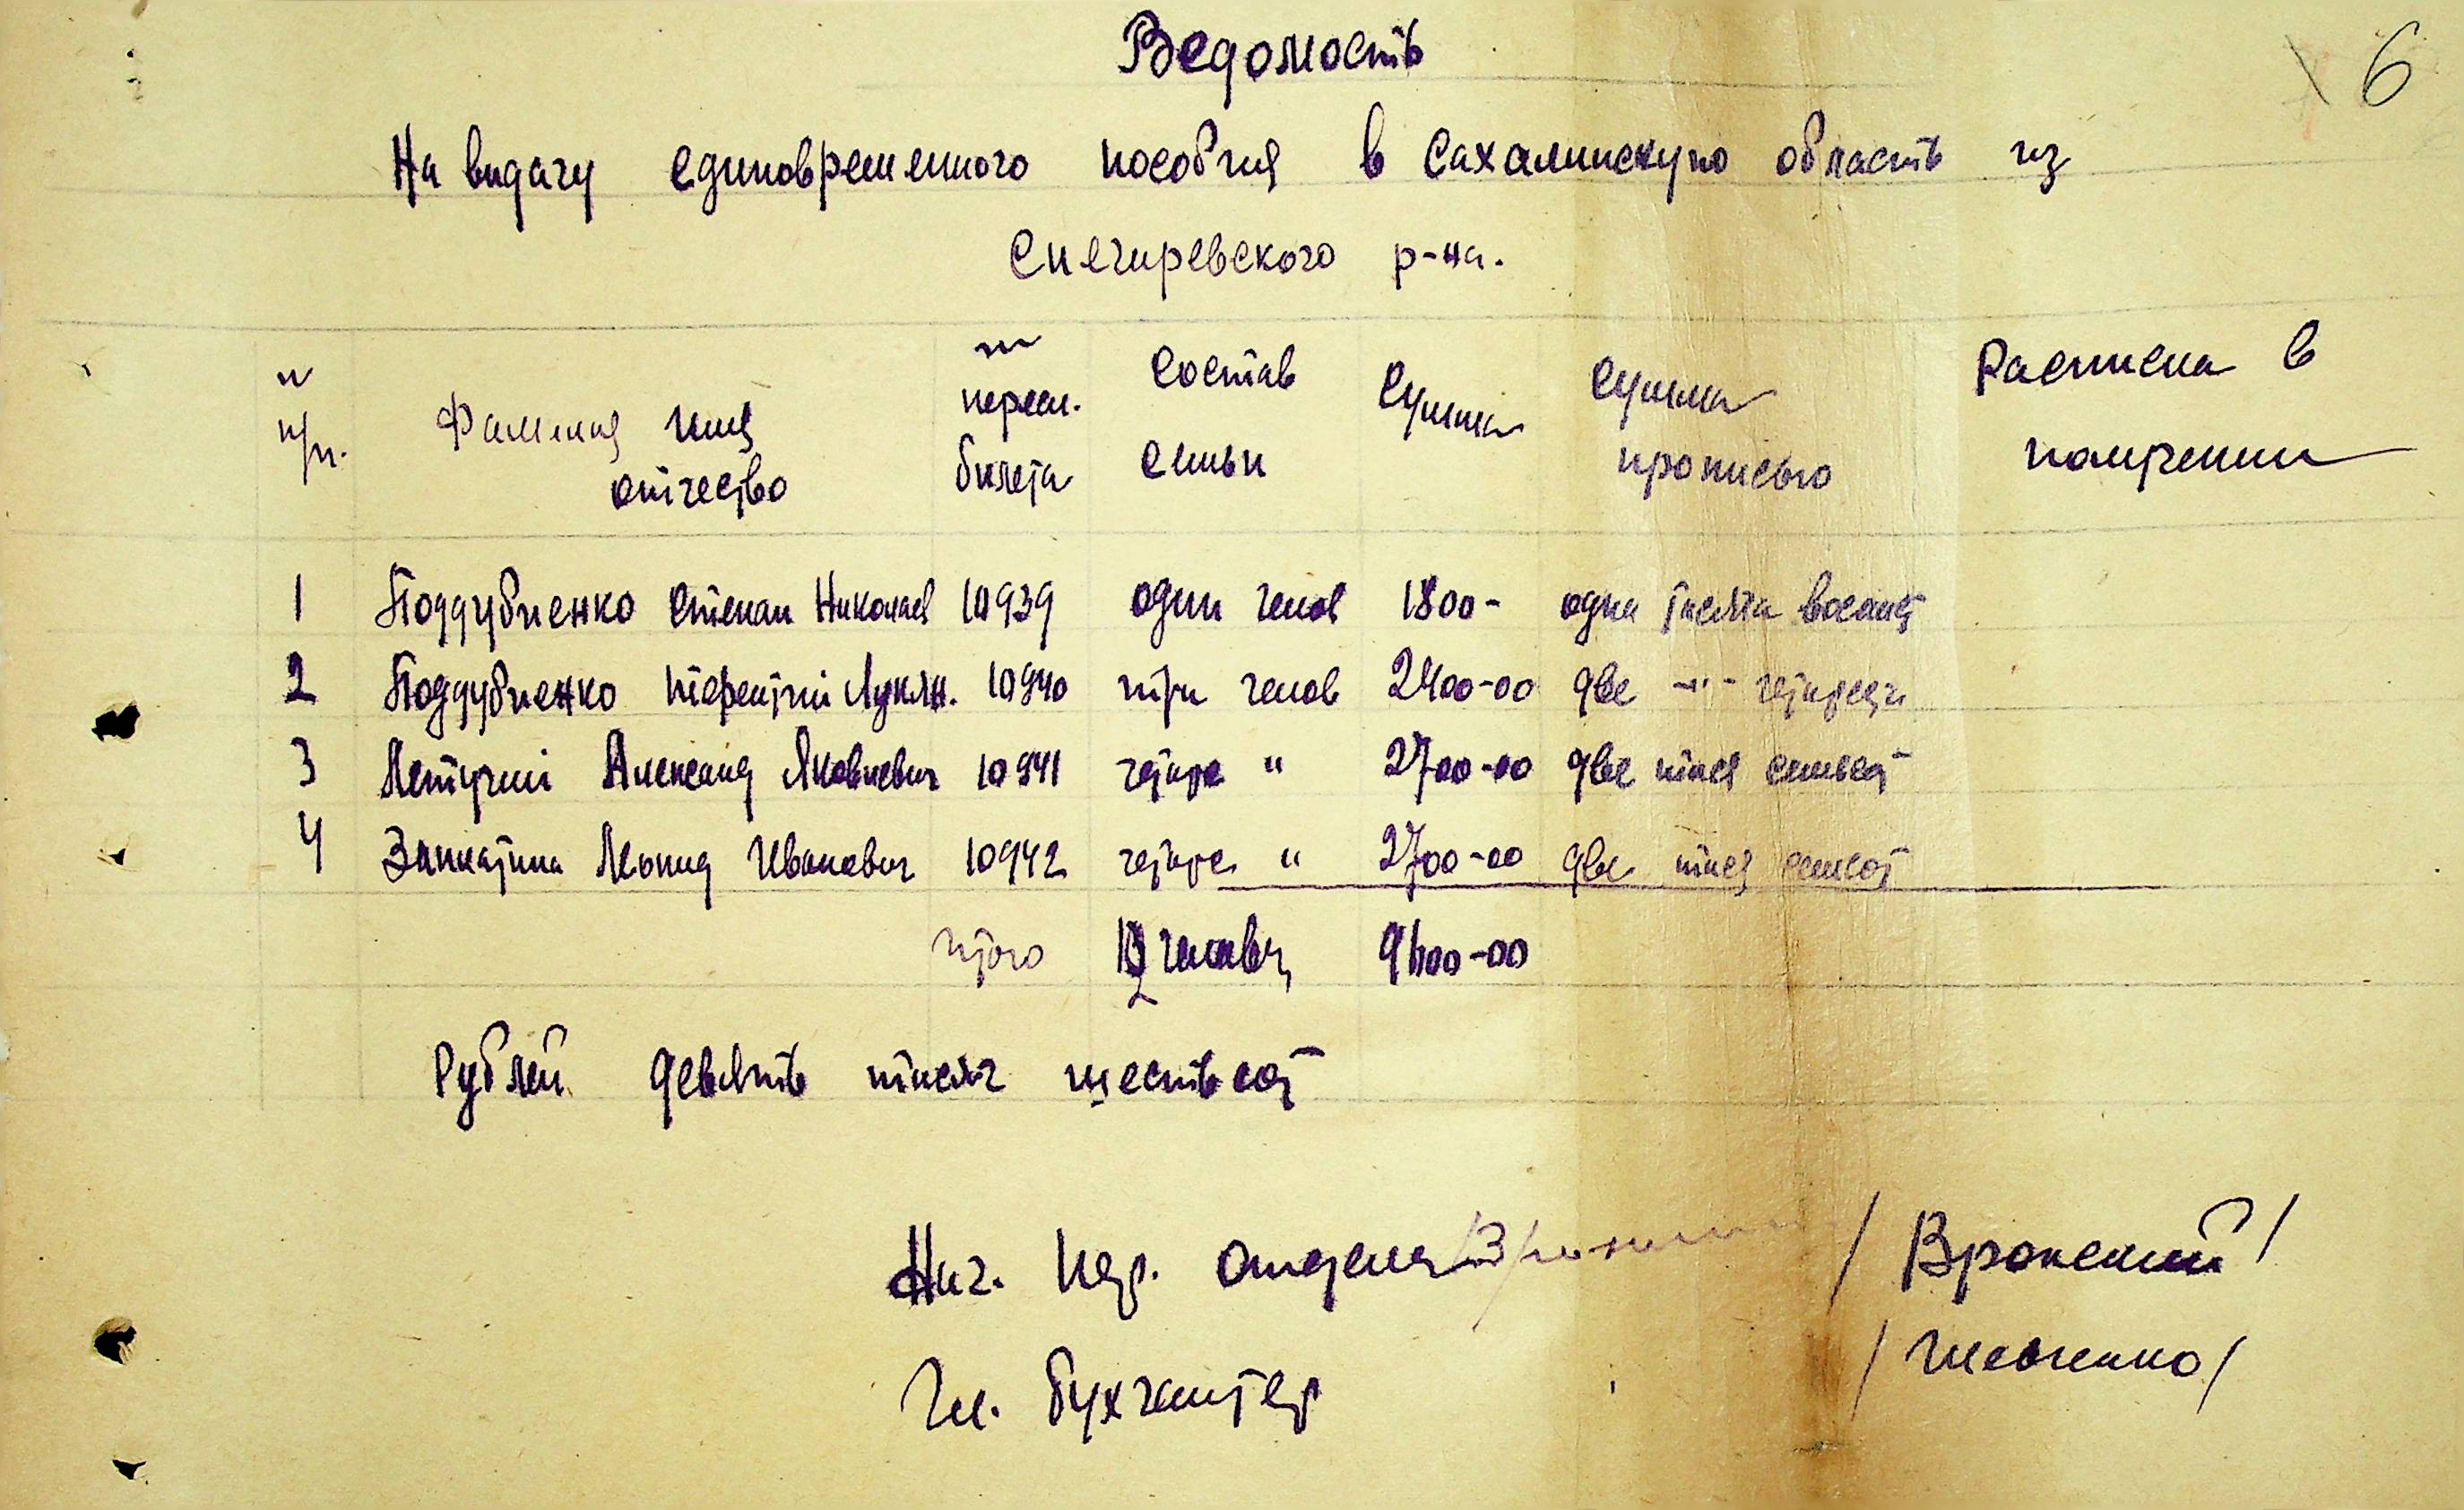 Ведомость
6
На видачу единовременного пособия в Сахалинскую область из
Снегиревского р-на.
№ п/п. Фамилия имя отчество № перес. билета Состав семьи Сумма Сумма прописью Расписка в получении
1 Поддубненко Степан Николаев 10939 один челов 1800- одна тисяча восемьсот
2 Поддубненко Терентий Лукян. 10940 три челов 2400-00 две -"- четиреста
3 Летучий Александ Яковлевич 10941 четире " 2700-00 две тися семьсот
4 Леонид Иванович 10942 четире " 2700-00 две тися семсот
Итого 12 человек 9600-00
Рублей девять тисяч шестьсот
Нач. Пер. Отдела / Вронский /
Гл. бухгалтер / Шевченко /